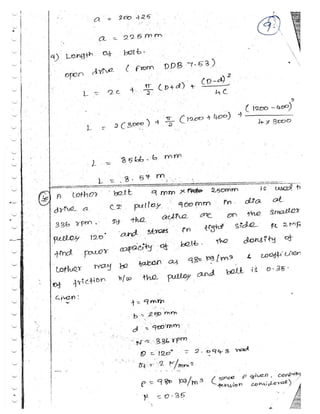 a = 200 + 25
9.
a = 225 mm
9) Length of belt.
open drive ( from DDB 7.53)
L = 2c + π/2 (D+d) + (D-d)²/4C
L = 2(3000) + π/2 (1200 + 400) + (1200 - 400)²/4 x 3000
L = 8566.6 mm
L = 8.57 m
A lather belt 9 mm x 250mm is used to
drive a CI pulley 900mm in dia at
336 rpm. If the active arc on the smaller
pulley 120° and stress in tight side is 2 MPa
find power capacity of belt. the density of
lather may be taken as 980 kg/m³ & coefficient
of friction b/w the pulley and belt is 0.35.
Given:
t = 9mm
b = 250 mm
d = 900mm
N = 336 rpm
θ = 120° = 2.0943 rad
σ₁ = 2 N/mm²
ρ = 980 kg/m³ (since ρ given, tension considered)
μ = 0.35